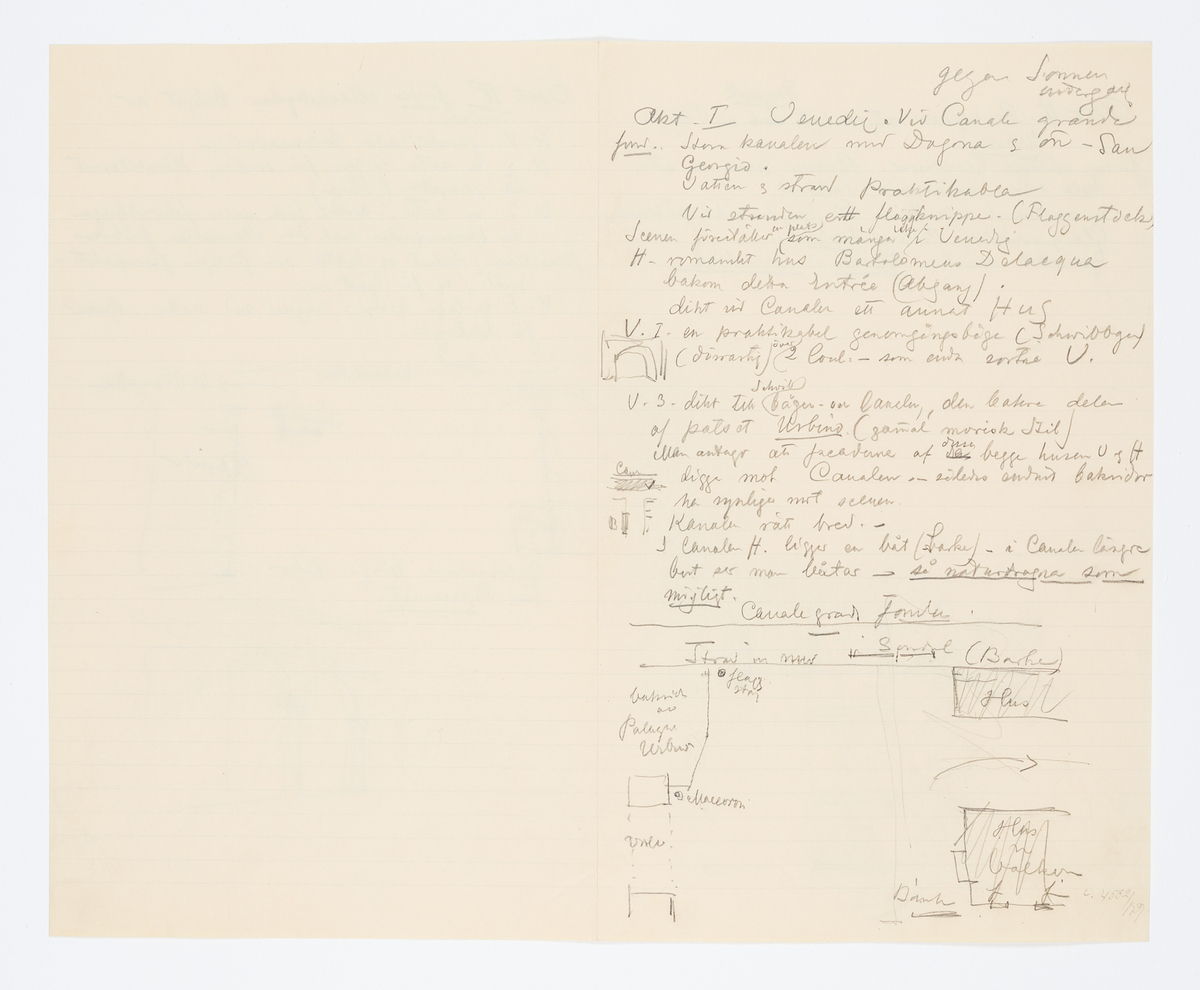 gegen Sonnen
undergang
Akt. I Venedig. Vid Canale grande
fond.. Stora kanalen med Dogana & ön - San
Georgio.
Vatten & strand praktikabla
Vid stranden ett flaggknippe - (Flaggenstock)
Scenen föreställer en plats som många i Venedig
H - romantiskt hus Bartolomeus Delacqua
bakom detta Entrée (Abgang).
dikt vid Canalen ett annat Hus
V. I. en praktikabel genomgångsbåge (Schwibbogen)
(över 2 Coul. - som enda sortie V.
Schwib
V. 3 - dikt till bågen - Canalen, den bakre delen
af palset Urbino. (gamal morisk Stil)
Man antager att facaderna af dessa begge husen V & H
Can
ligga mot Canalen - således endast baksidor
na synliga mot scenen.
Kanalen rätt bred. -
I Canalen H. ligger en båt (Barke) - i Canalen längre
bort ser man båtar - så naturtrogna som
möjligt.
Canale grande Fonden.
Strand (Barke)
flagg
stång
Hus
baksida
av
Palazzo
Urbino
Maccaroni
Hus
m
balkon
Bänk